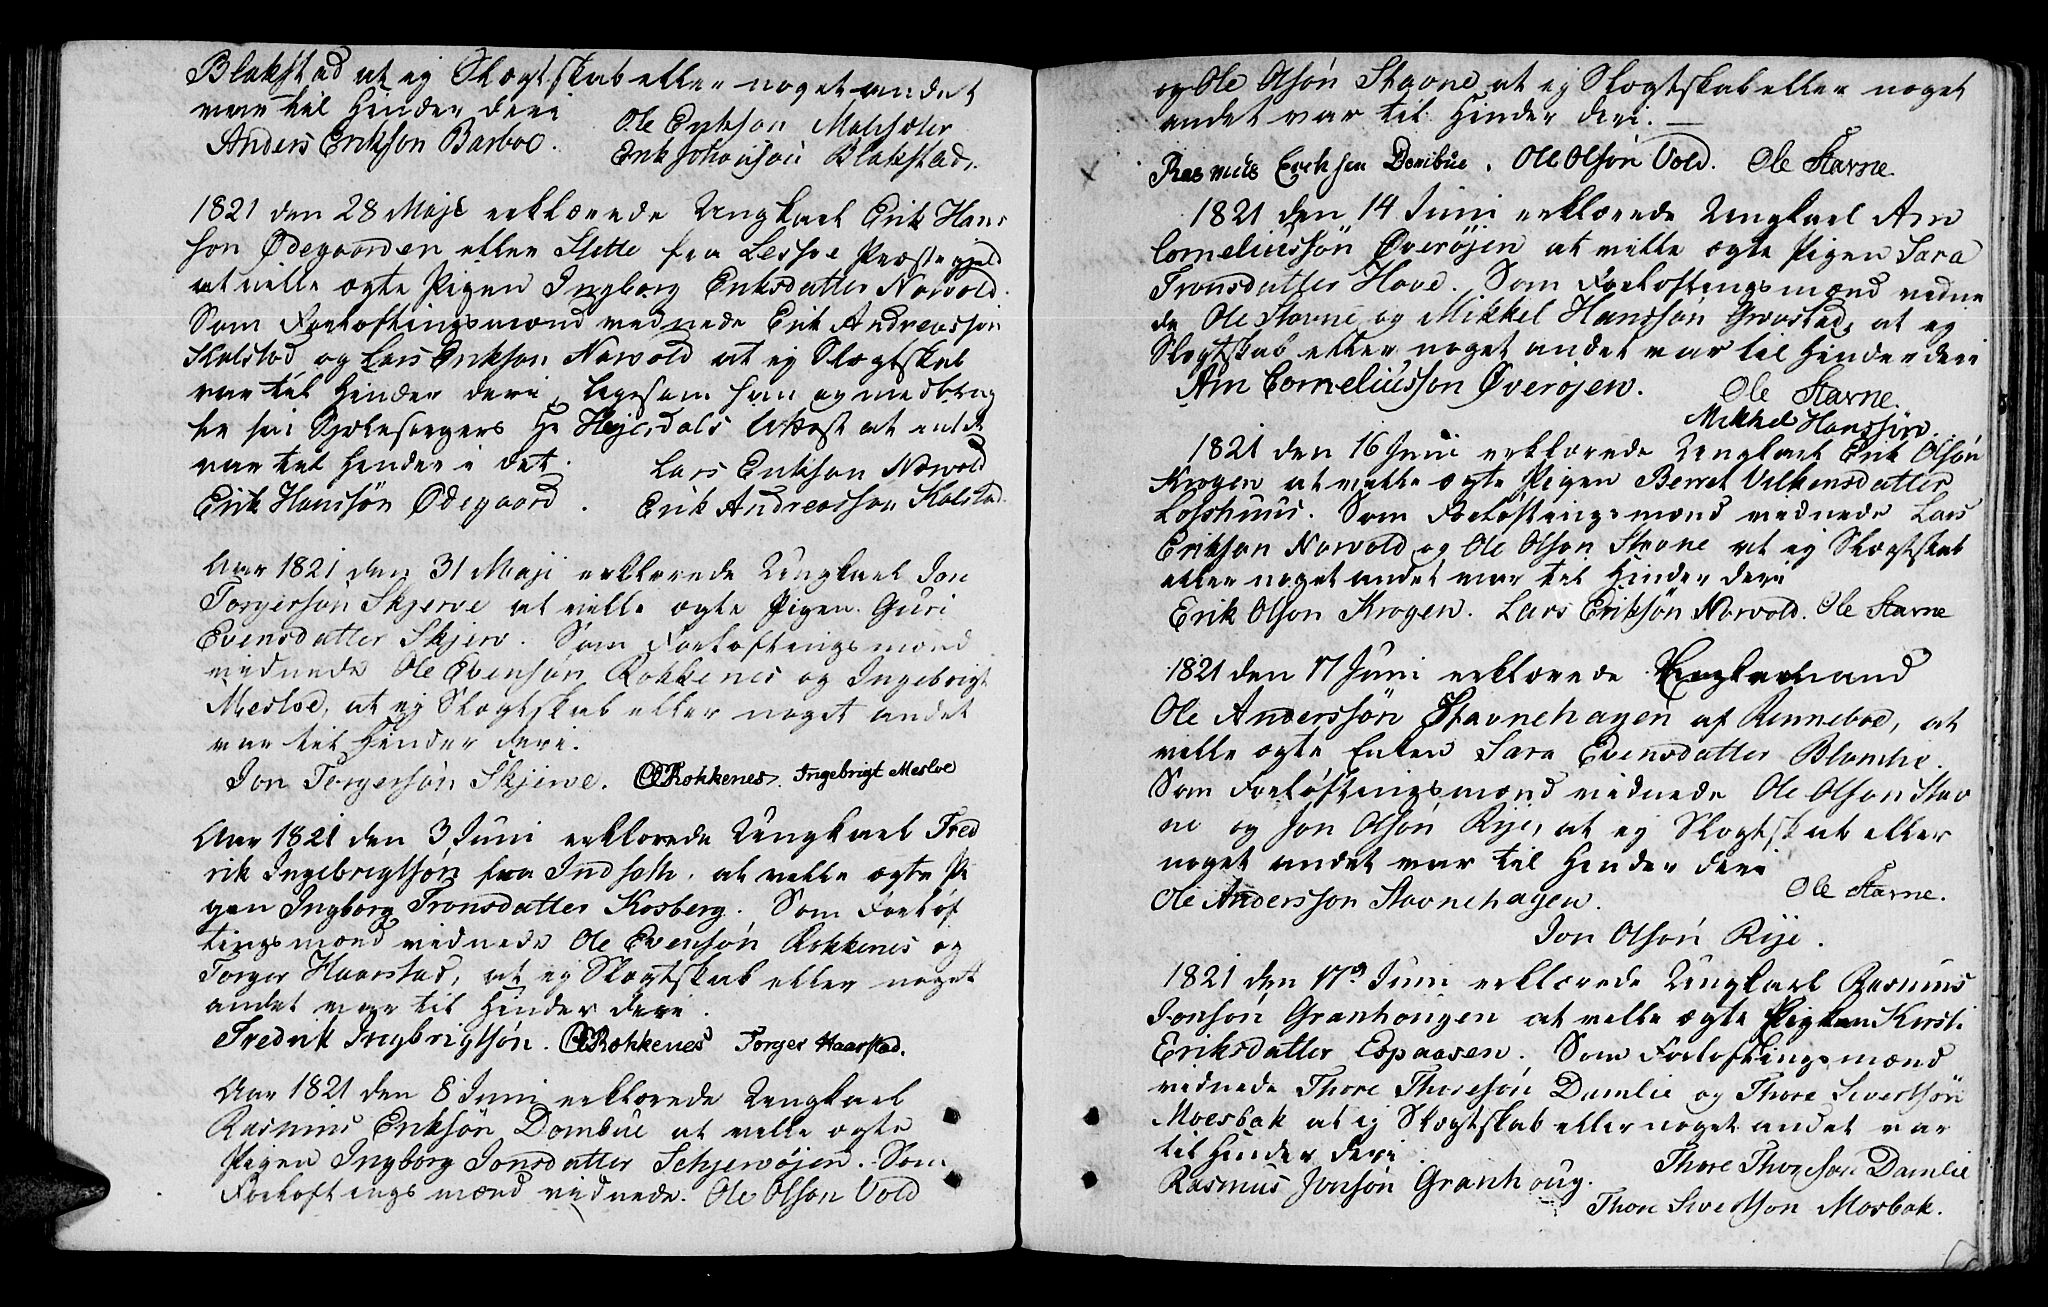 Blakstad at ej Slægtskab eller noget andet
var til Hinder deri
Anders Erikson Barboe. Ole Erikson
Erik Johanson Blakstad.
1821 den 28 Maji erklærede Ungkarl Erik Hans
søn Ødegaarden eller Slette fra Lessøe Præstegjeld
at ville ægte Pigen Ingborg Eriksdatter Norvold.
Som Forløftningsmænd vidnede Erik Andreassøn
Kalstad og Lars Erikson Norvold at ej Slægtskab
var til Hinder deri, ligesom han og medbrag
te sin Sjælesørgers Hr Hejerdals Attest at intet
var til Hinder i det.
Lars Erikson Norvold
Erik Hanssøn Ødegaard. Erik Andreasson Kalstad.
Aar 1821 den 31 Maji erklærede Ungkarl Jon
Torgerson Skjerve at ville ægte Pigen Guri
Evensdatter Skjerv. Som Forløftningsmænd
vidnede Ole Evensøn Rokkenes og Ingebrigt
Mesloe, at ej Slægtskab eller noget andet
var til Hinder deri.
Jon Torgersøn Skjerve. OERokkenes. Ingebrigt Mesloe
Aar 1821 den 3 Juni erklærede Ungkarl Fred
rik Ingebrigtsøn fra Indsette, at ville ægte Pi
gen Ingborg Tronsdatter Kosberg. Som Forløf
tingsmænd vidnede Ole Evensøn Rokkenes og
Torger Haarstad, at ej Slægtskab eller noget
andet var til Hinder deri.
Fredrik Ingbrigtsøn. OERokkenes Torger Haarstad.
Aar 1821 den 8 Juni erklærede Ungkarl
Rasmus Eriksøn Dombue at ville ægte
Pigen Ingborg Jonsdatter Schjervøjen. Som
Forløftingsmænd vidnede. Ole Olson Vold
og Ole Olsøn Stavne at ej Slægtskab eller noget
andet var til Hinder deri.
Rasmus Ericksen Dombue. Ole Olsøn Vold. Ole Stavne.
1821 den 14 Juni erklærede Ungkarl Arn
Corneliussøn Øverøjen at ville ægte Pigen Sara
Tronsdatter Hove. Som Forløftingsmænd vidne
de Ole Stavne og Mikkel Hanssøn Grøvstad, at ej
Slægtskab eller noget andet var til Hinder deri
Arn Corneliusson Øverøjen. Ole Stavne.
Mikkel Hanssøn.
1821 den 16 Juni erklærede Ungkarl Erik Olsøn
Krogen at ville ægte Pigen Berret Vilkensdatter
Losshuus. Som Forløftingsmænd vidnede Lars
Erikson Norvold og Ole Olson Stavne at ej Slægtskab
eller noget andet var til Hinder deri
Erik Olson Krogen. Lars Eriksøn Norvold. Ole Stavne
1821 den 17 Juni erklærede Enkemand
Ole Anderssøn Stavnehagen af Rennebøe, at
ville ægte Enken Sara Evensdatter Blomhe.
Som Forløftingsmænd vidnede Ole Olson Stav
ne og Jon Olsøn Rije, at ej Slægtskab eller
noget andet var til Hinder deri
Ole Andersson Stavnehagen. Ole Stavne.
Jon Olsøn Rije.
1821 den 17d Juni erklærede Ungkarl Rasmus
Jonsøn Granhougen at ville ægte Pigen Kirsti
Eriksdatter Espaasen. Som Forløftingsmænd
vidnede Thore Thoresøn Damlie og Thore Sivertsøn
Moesbak at ej Slægtskab eller noget andet var
til Hinder deri.
Thore Thoreson Damlie
Rasmus Jonsøn Granhoug.
Thore Sivertson Mosbak.